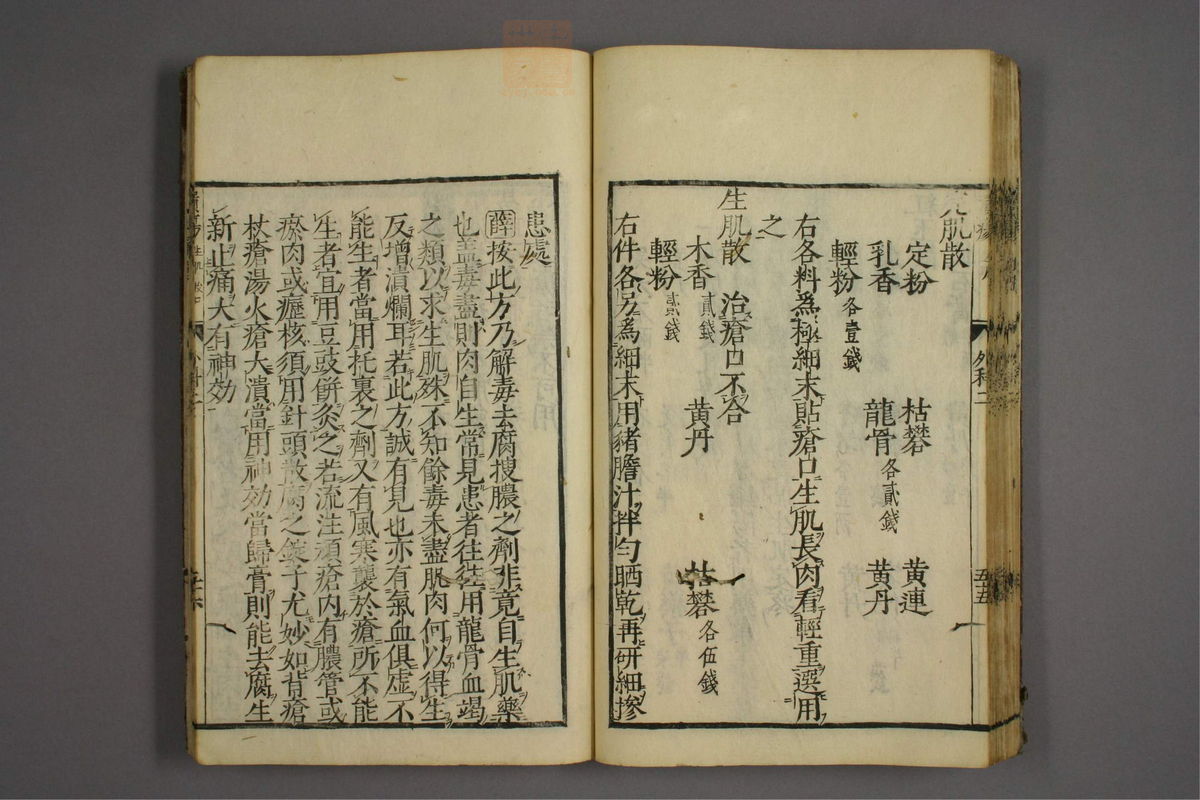 生肌散
定粉 枯礬 黄連
乳香 龍骨各貳錢 黄丹
輕粉各壹錢
右各料爲極細末貼瘡口生肌長肉看輕重選用
之
生肌散 治瘡口不合
木香貳錢 黄丹 枯礬各伍錢
輕粉貳錢
右件各另爲細末用猪膽汁拌匀晒乾再研細摻
外科二
五五
患處
薛按此方乃解毒去腐搜膿之劑非竟自生肌藥
也盖毒盡則肉自生常見患者往往用龍骨血竭
之類以求生肌殊不知餘毒未盡肌肉何以得生
反增潰爛耳若此方誠有見也亦有氣血俱虚不
能生者當用托裏之劑又有風寒襲於瘡所不能
生者宜用豆豉餅灸之若流注頑瘡内有膿管或
瘀肉或癧核須用針頭散腐之錠子尤妙如背瘡
杖瘡湯火瘡大潰當用神効當歸膏則能去腐生
新止痛大有神効